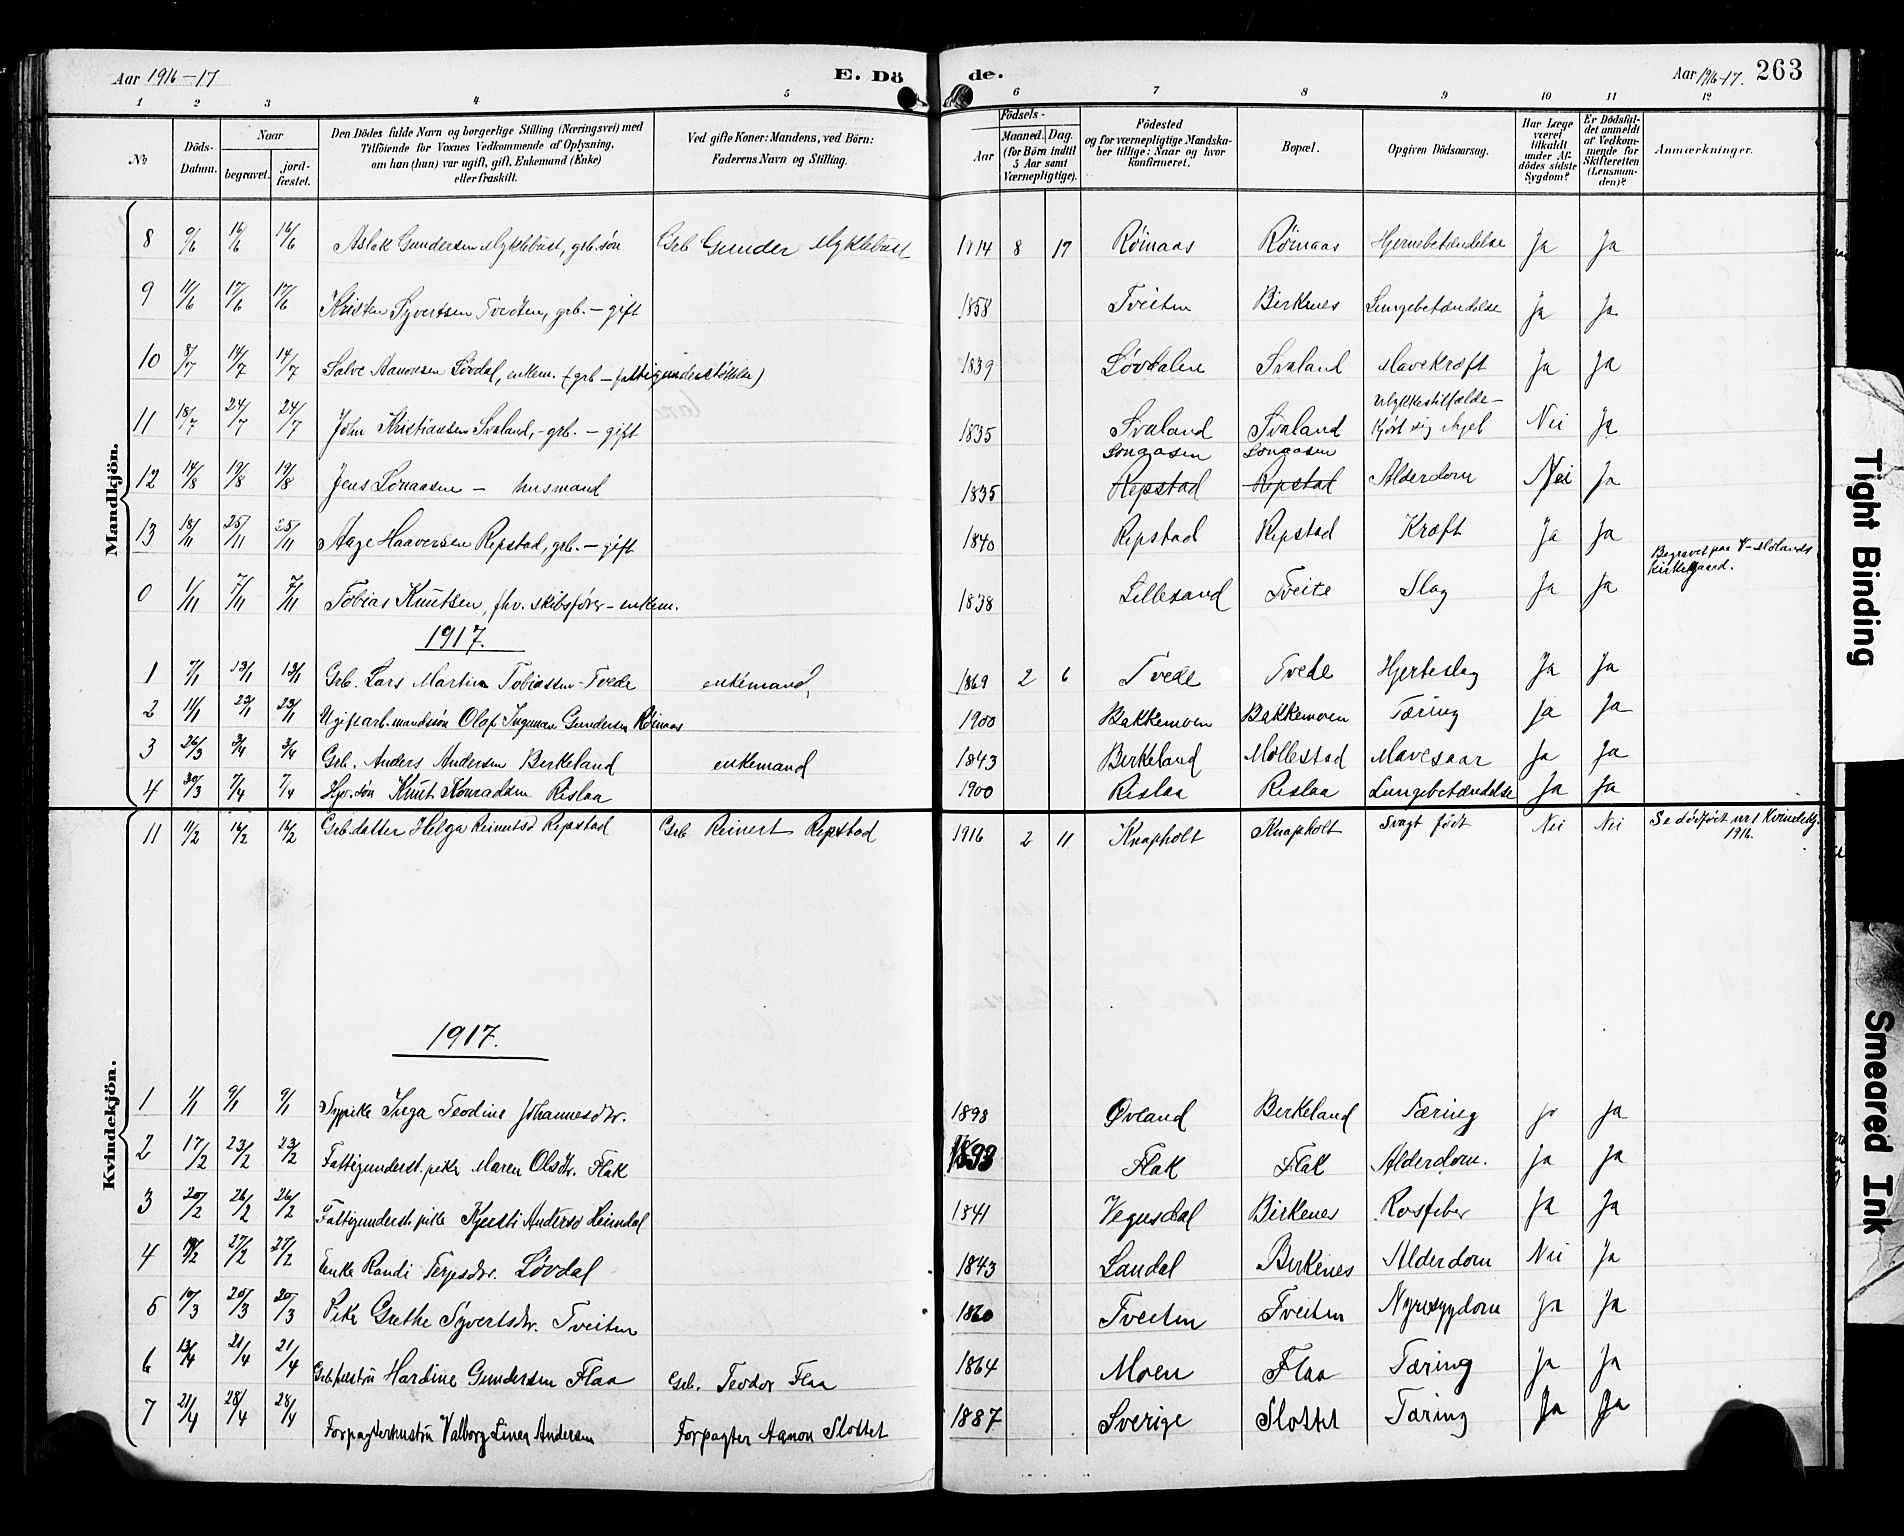 Aar 1916-17 E. Dö de. Aar 1916-17. 263
1 2 3 4 5 6 7 8 9 10 11 12
No Döds-Datum. Naar begravet. jordfæstet. Den Dödes fulde Navn og borgerlige Stilling (Næringsvei) med Tilföiende for Voxnes Vedkommende af Oplysning, om han (hun) var ugift, gift, Enkemand (Enke) eller fraskilt. Ved gifte Koner: Mandens, ved Börn: Faderens Navn og Stilling. Födsels- Aar Maaned. Dag. (for Börn indtil 5 Aar samt Værnepligtige). Födested og for værnepligtige Mandskaber tillige: Naar og hvor konfirmeret. Bopæl. Opgiven Dödsaarsag. Har Læge været tilkaldt under Afdödes sidste Sygdom? Er Dödsfaldet anmeldt af Vedkommende for Skifteretten (Lensmanden)? Anmærkninger.
Mandkjön.
8 9/6 16/6 16/6 Aslak Gundersen Myklebust, grb. søn Grb Gunder Myklebust 1914 8 17 Röinaas Röinaas Hjernebetændelse Ja Ja
9 11/6 17/6 17/6 Kristen Syvertsen Tveiten, grb. - gift 1858 Tveiten Birkenes Lungebetændelse Ja Ja
10 8/7 14/7 14/7 Salve Aanonsen Lövdal, enkem. (grb - fattigunderstöttelse) 1839 Lövdalen Svaland Mavekræft Ja Ja
11 18/7 24/7 24/7 John Kristiansen Svaland, - grb. - gift 1835 Svaland Svaland Ulykkestilfælde - Kjört sig ihjel Nei Ja
12 14/8 19/8 19/8 Jens Lönaasen - husmand 1835 Lönaasen Repstad Lönaasen Repstad Alderdom Nei Ja
13 18/11 25/11 25/11 Aage Haaversen Repstad, grb. - gift 1840 Repstad Repstad Kræft Ja Ja
0 1/11 7/11 7/11 Tobias Knutsen, fhv. skibsfører - enkem. 1838 Lillesand Tveite Slag Ja Ja Begravet paa V-Molands Kirkegaard.
1917.
1 7/1 13/1 13/1 Grb. Lars Martin Tobiassen Tvede enkemand, 1869 2 6 Tvede Tvede Hjerteslag Ja Ja
2 11/1 23/1 23/1 Ugift arb. mandssön Olaf Ingman Gundersen Röinaas 1900 Bakkemoen Bakkemoen Tæring Ja Ja
3 26/3 3/4 3/4 Grb. Anders Andersen Berkeland enkemand 1843 Berkeland Mollestad Mavesaar Ja Ja
4 30/3 7/4 7/4 søn Knut Konradsen Rislaa 1900 Rislaa Rislaa Lungebetændelse Ja Ja
Kvindekjön.
11 11/2 16/2 16/2 Grb. datter Helga Reinertsd Repstad Grb Reinert Repstad 1916 2 11 Knapholt Knapholt Svagt født Nei Nei Se dødfødt nr 1 Kvindekj. 1916.
1917.
1 1/1 9/1 9/1 Sypike Inga Teodine Johannesdtr. 1898 Øvland Berkeland Tæring Ja Ja
2 17/2 23/2 23/2 Fattigunderst. pike Maren Olsdtr. Flak Flak Flak Alderdom. Ja Ja
3 20/2 26/2 26/2 Fattigunderst pike Kjersti Andersd Heimdal 1841 Vegusdal Birkenes Rosfeber Ja Ja
4 27/2 27/2 Enke Randi Terjesdtr. Lövdal 1843 Landal Berkenes Alderdom Nei Ja
5 20/3 20/3 Pike Grethe Syvertsdtr. Tveiten 1860 Tveiten Tveiten Nyresygdom Ja Ja
6 13/4 21/4 21/4 Grb. hustru Hardine Gundersen Flaa Grb. Teodor Flaa 1864 Moen Flaa Tæring Ja Ja
7 21/4 28/4 28/4 Forpagterhustru Valborg Linea Andersen Forpagter Aanon Slottet 1887 Sverige Slottet Tæring Ja Ja
Tight Binding
Smeared Ink